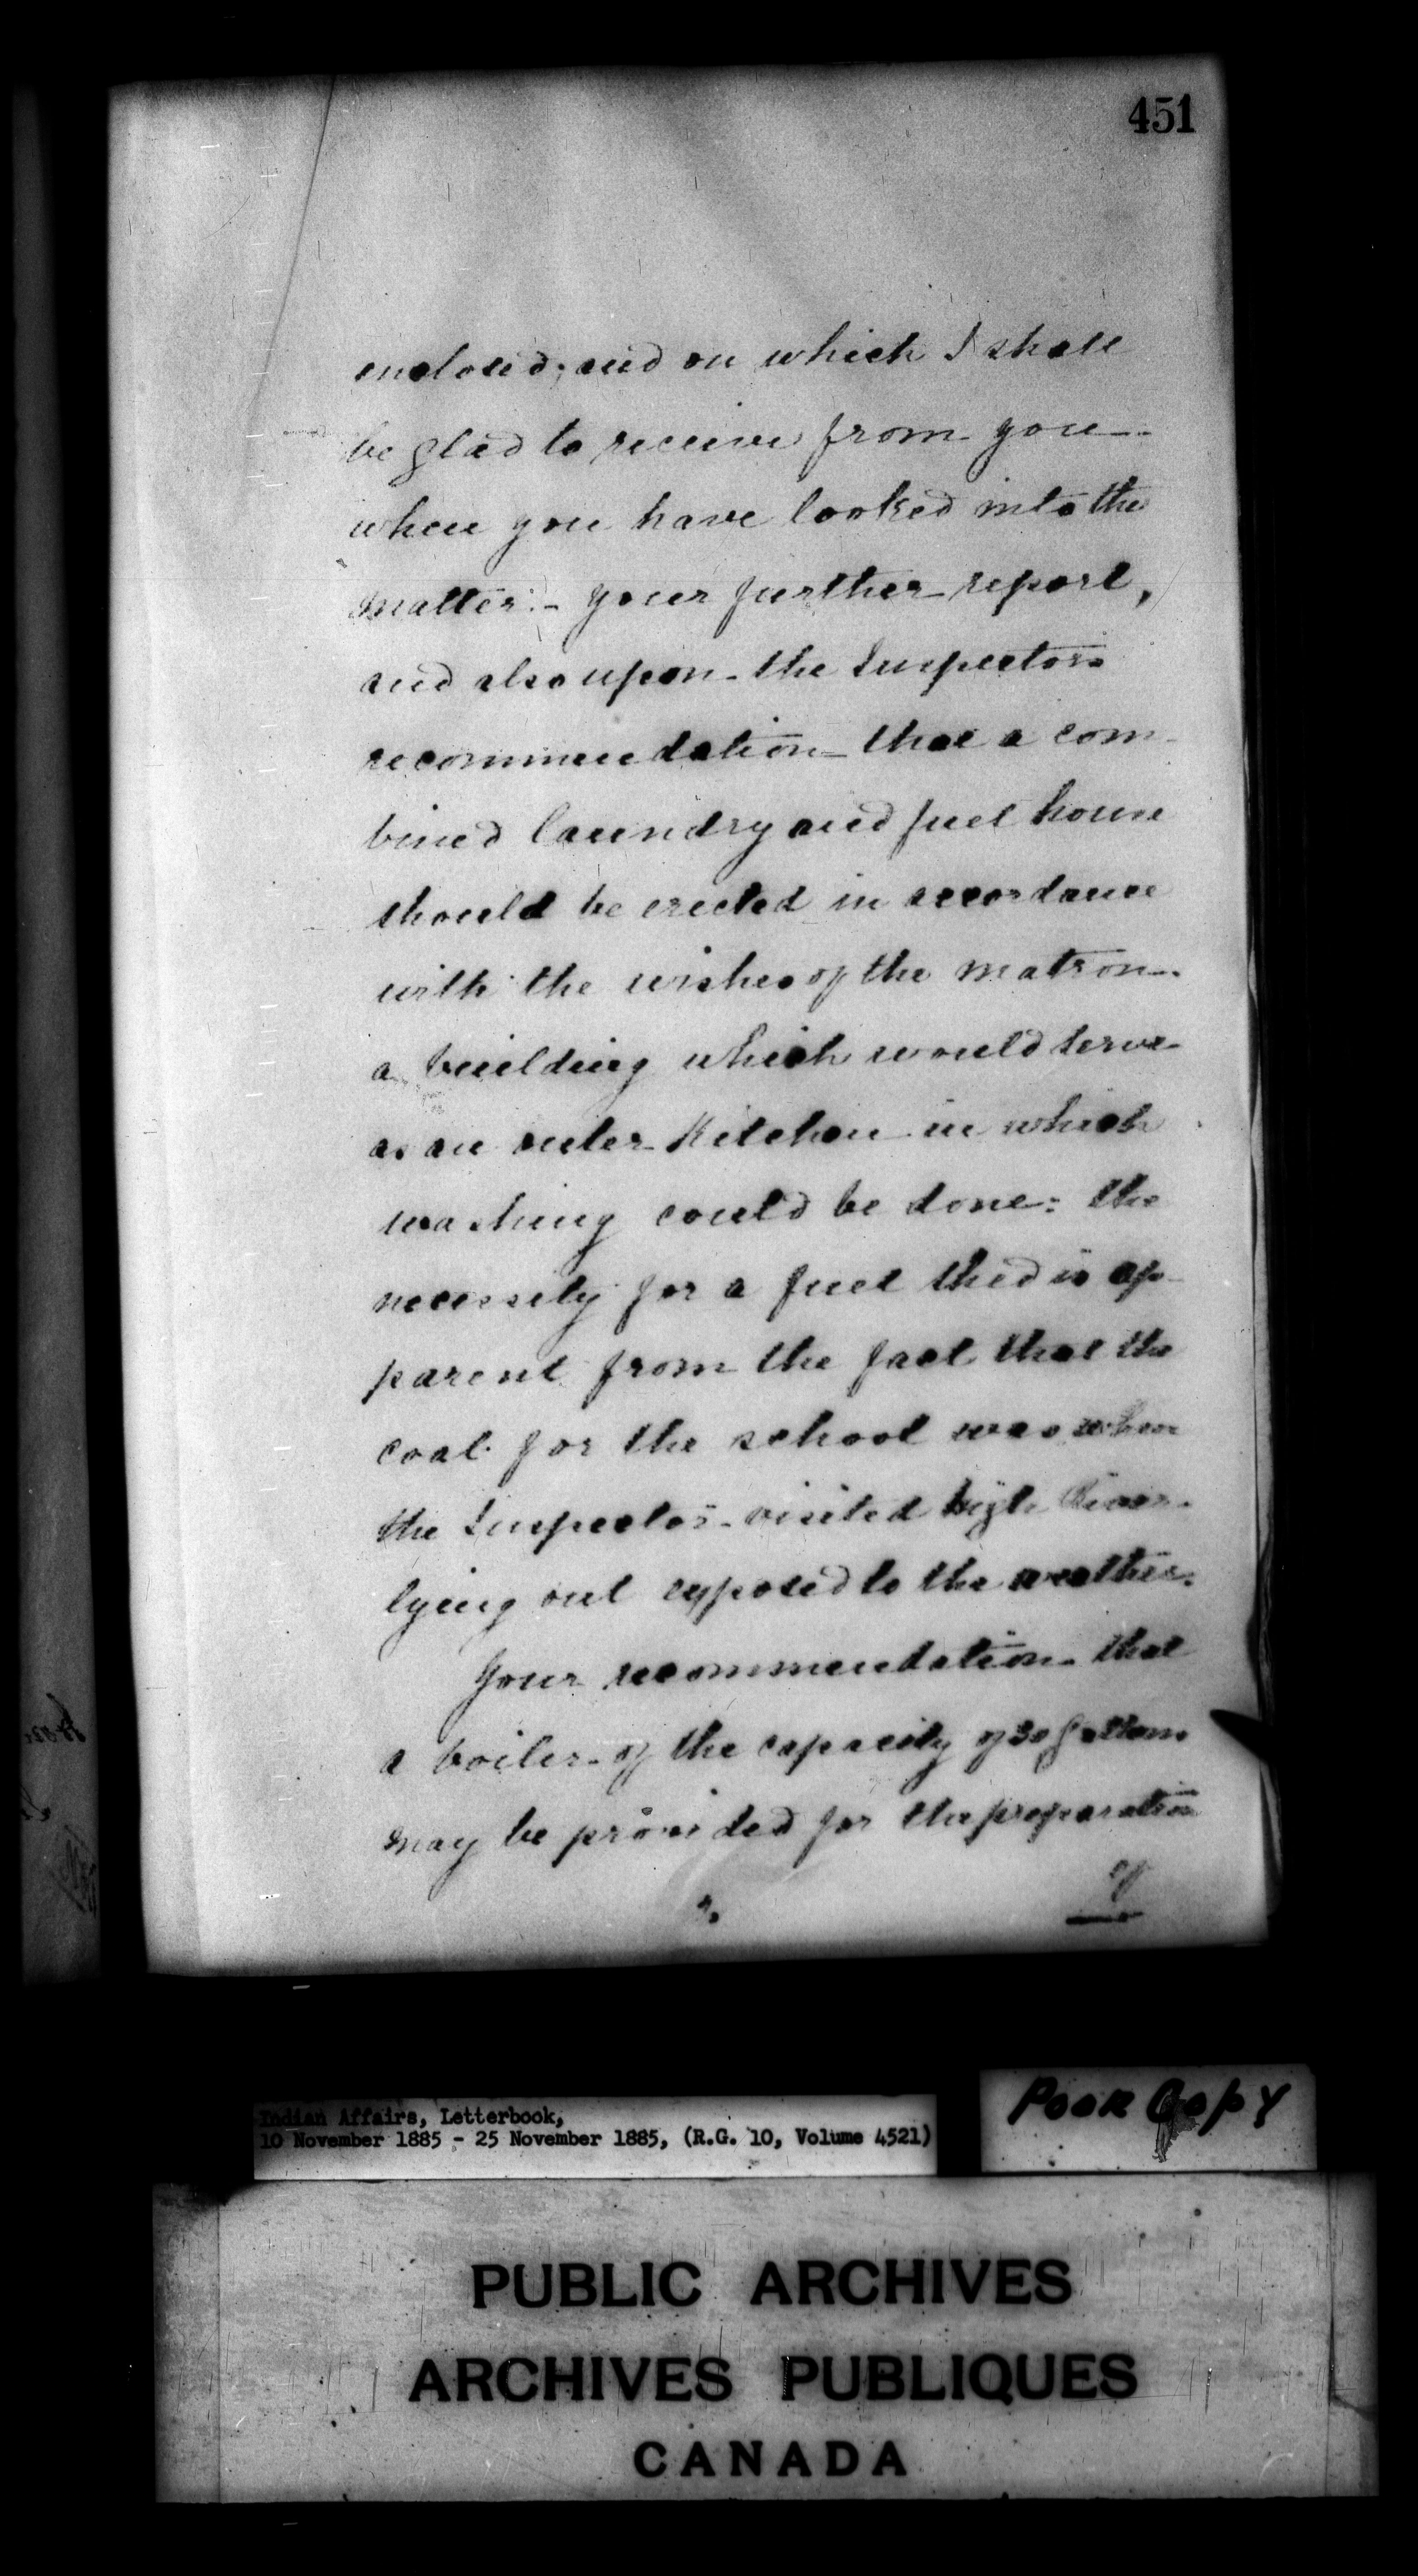 451
enclosed; and on which I shall
be glad to receive from you
when you have looked into the
matter:- your further report,
and also upon the Inspectors
recommendation that a com-
bined laundry and fuel house
should be erected in accordance
with the wishes of the matron
a building which would serve
as an outer Kitchen in which
washing could be done: the
necessity for a fuel shed is ap-
parent from the fact that the
coal for the school was when
the Inspector visited High River
lying out exposed to the weather.
Your recommendation that
a boiler of the capacity of 30 gallons
may be provided for the preparation
of
Indian Affairs, Letterbook,
10 November 1885 - 25 November 1885, (R.G. 10, Volume 4521)
POOR COPY
PUBLIC ARCHIVES
ARCHIVES PUBLIQUES
CANADA